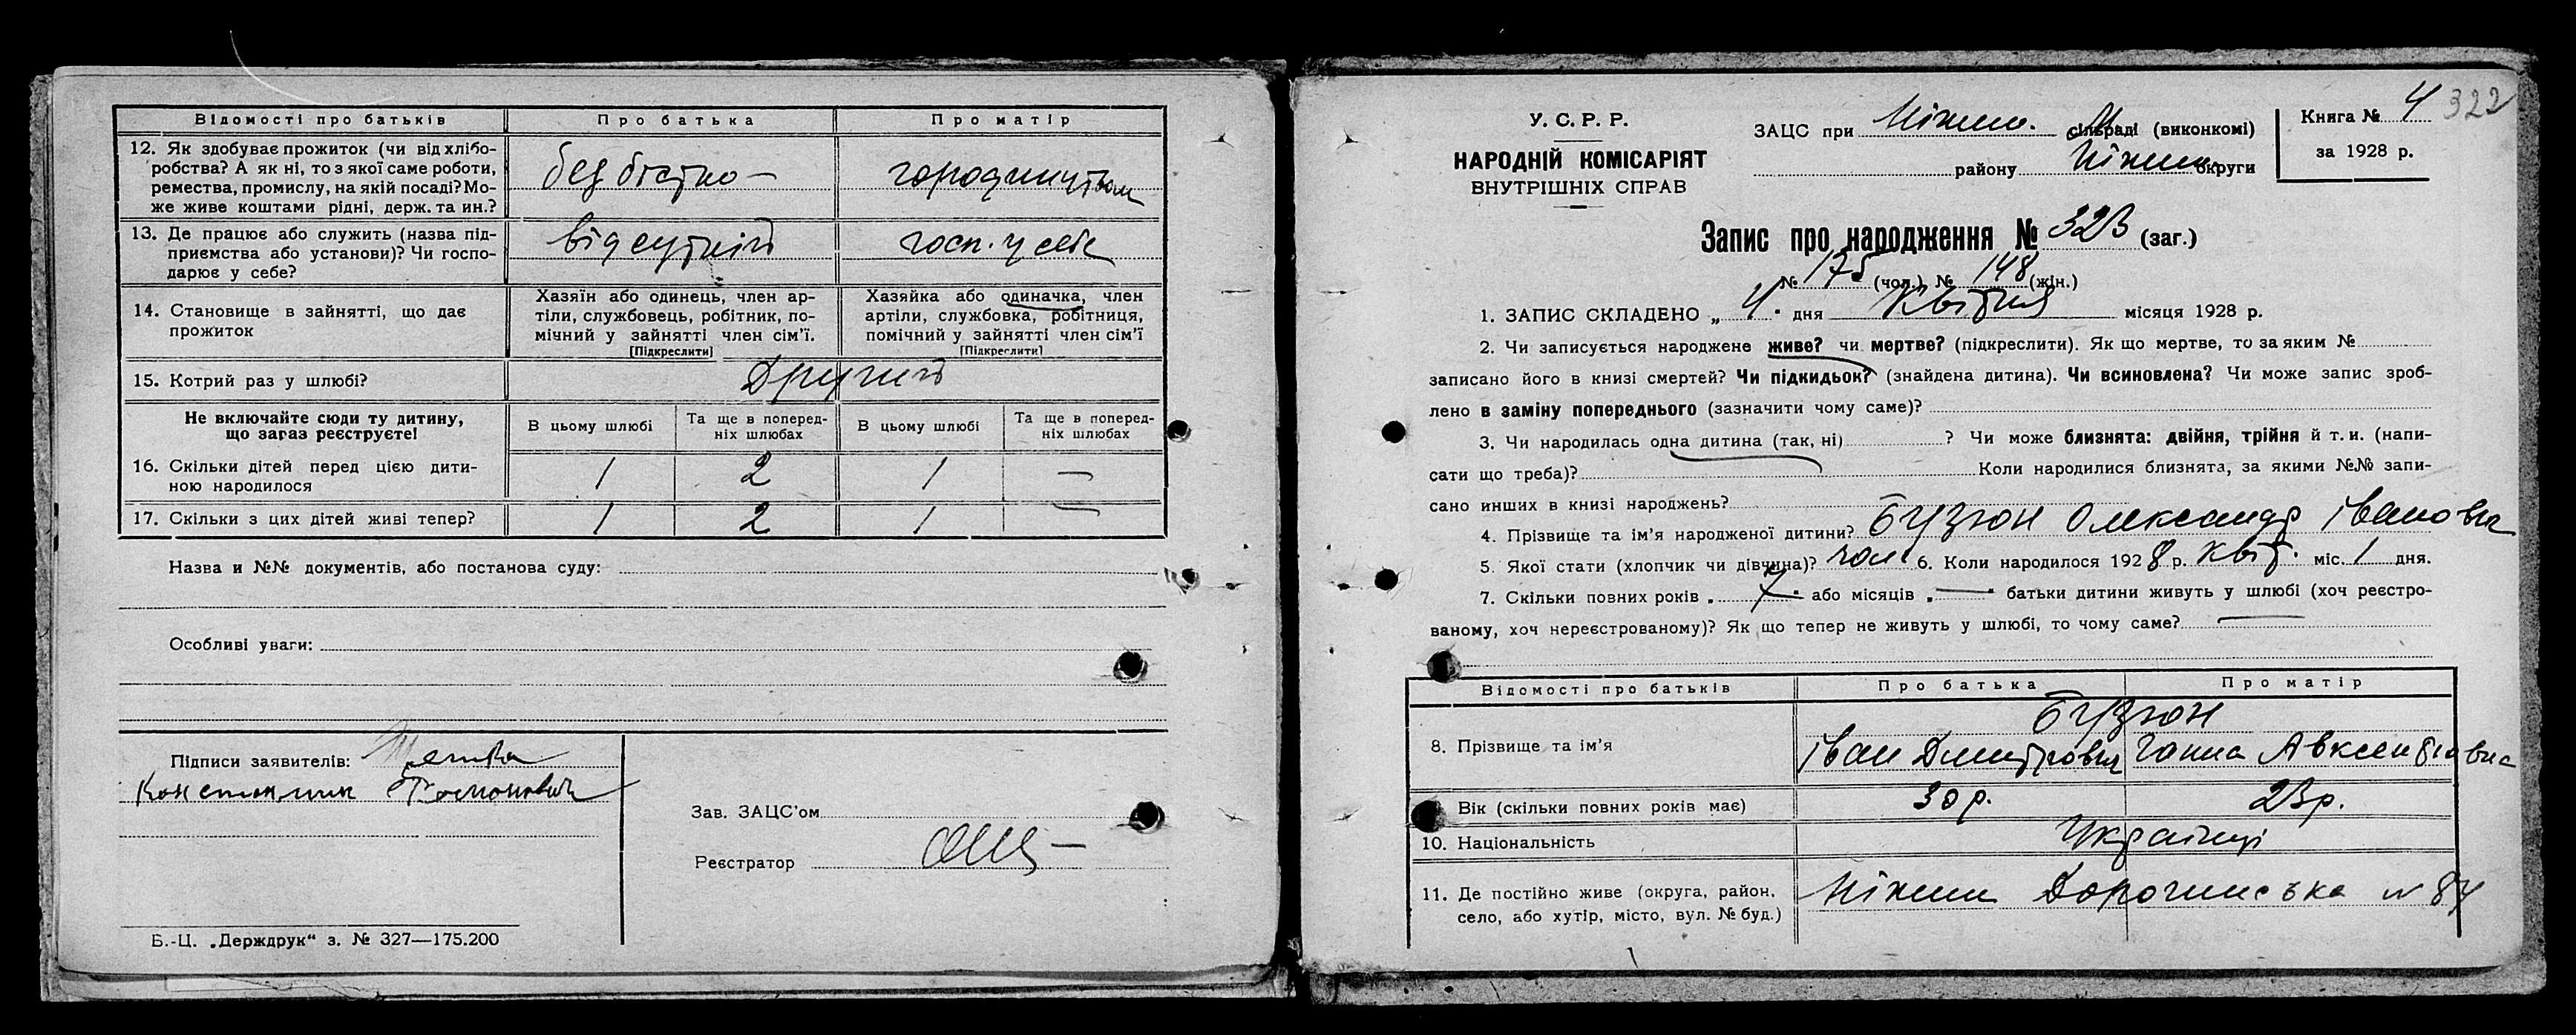 Відомості про батьків Про батька Про матір
12. Як здобуває прожиток (чи від хлібо-
робства? А як ні, то з якої саме роботи,
ремества, промислу, на якій посаді? Мо-
же живе коштами рідні, держ. та ин.?
городництвом
13. Де працює або служить (назва під-
приємства або установи)? Чи госпо-
дарює у себе?
відсутній госп. у себе
14. Становище в зайнятті, що дає
прожиток
Хазяїн або одинець, член ар-
тіли, службовець, робітник, по-
мічний у зайнятті член сім'ї.
[Підкреслити]
Хазяйка або одиначка, член
артіли, службовка, робітниця,
помічний у зайнятті член сім'ї
[Підкреслити]
15. Котрий раз у шлюбі? Другий
Не включайте сюди ту дитину,
що зараз реєструєте!
В цьому шлюбі
Та ще в поперед-
ніх шлюбах
В цьому шлюбі
Та ще в поперед-
ніх шлюбах
16. Скільки дітей перед цією дити-
ною народилося
1 2 1 —
17. Скільки з цих дітей живі тепер? 1 2 1 —
Назва и №№ документів, або постанова суду:
Особливі уваги:
Підписи заявителів:
Зав. ЗАЦС'ом
Реєстратор
Б.-Ц. „Держдрук" з. № 327—175.200
У. С. Р. Р.
НАРОДНІЙ КОМІСАРІЯТ
ВНУТРІШНІХ СПРАВ
ЗАЦС при Ніжин. сільраді (виконкомі)
району Ніжин. округи
Книга № 4
за 1928 р.
322
Запис про народження № 323 (заг.)
№ 175 (чол.) № 148 (жін.)
1. ЗАПИС СКЛАДЕНО „ 4 " дня Квітня місяця 1928 р.
2. Чи записується народжене живе? чи мертве? (підкреслити). Як що мертве, то за яким №
записано його в книзі смертей? Чи підкидьок? (знайдена дитина). Чи всиновлена? Чи може запис зроб-
лено в заміну попереднього (зазначити чому саме)?
3. Чи народилась одна дитина (так, ні) ? Чи може близнята: двійня, трійня й т. и. (напи-
сати що треба)? Коли народилися близнята, за якими №№ запи-
сано инших в книзі народжень?
4. Прізвище та ім'я народженої дитини? Бузюн Олександр Іванович
5. Якої стати (хлопчик чи дівчина)? чол. 6. Коли народилося 1928 р. квіт. міс. 1 дня.
7. Скільки повних років „ 7 " або місяців „ — " батьки дитини живуть у шлюбі (хоч реєстро-
ваному, хоч нереєстрованому)? Як що тепер не живуть у шлюбі, то чому саме? —
Відомості про батьків Про батька Про матір
Бузюн
8. Прізвище та ім'я Іван Дмитрович Ганна Авксентіївна
Вік (скільки повних років має) 30 р. 23 р.
10. Національність Українці
11. Де постійно живе (округа, район,
село, або хутір, місто, вул. № буд.)
Ніжин